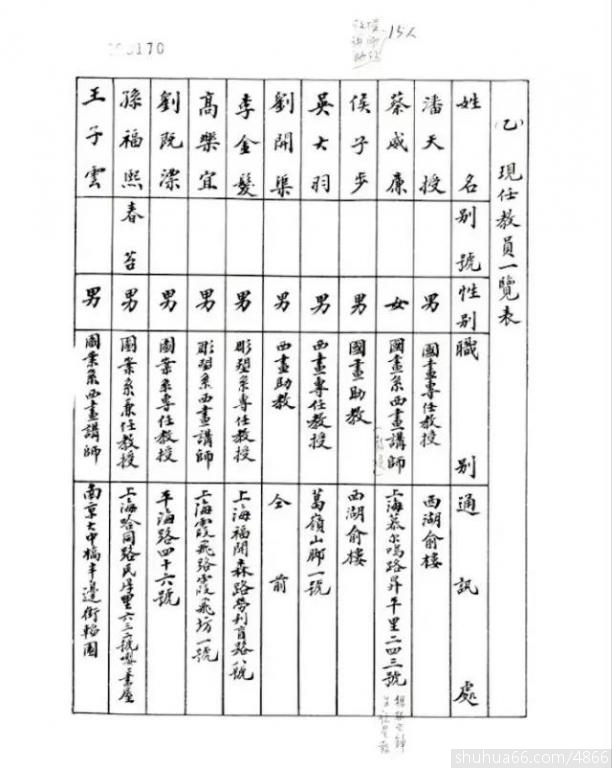 170
15人
(乙) 現任教員一覽表
姓名 別號 性別 職別 通訊處
潘天授 男 國畫專任教授 西湖俞樓
蔡威廉 女 國畫系西畫講師 上海慕尔鳴路昇平里二四三號
侯子步 男 國畫助教 西湖俞樓
吳大羽 男 西畫專任教授 葛嶺山脚一號
劉開渠 男 西畫助教 仝前
李金髮 男 彫塑系專任教授 上海福開森路勞利育路八號
高樂宜 男 彫塑系西畫講師 上海霞飛路霞飛坊一號
劉既漂 男 圖案系專任教授 平海路四十六號
孫福熙 春苔 男 圖案系兼任教授 上海哈同路民厚里六三六號嚶嚶書屋
王子雲 男 圖案系西畫講師 南京大中橋半邊街韜園
shuhua66.com/4866